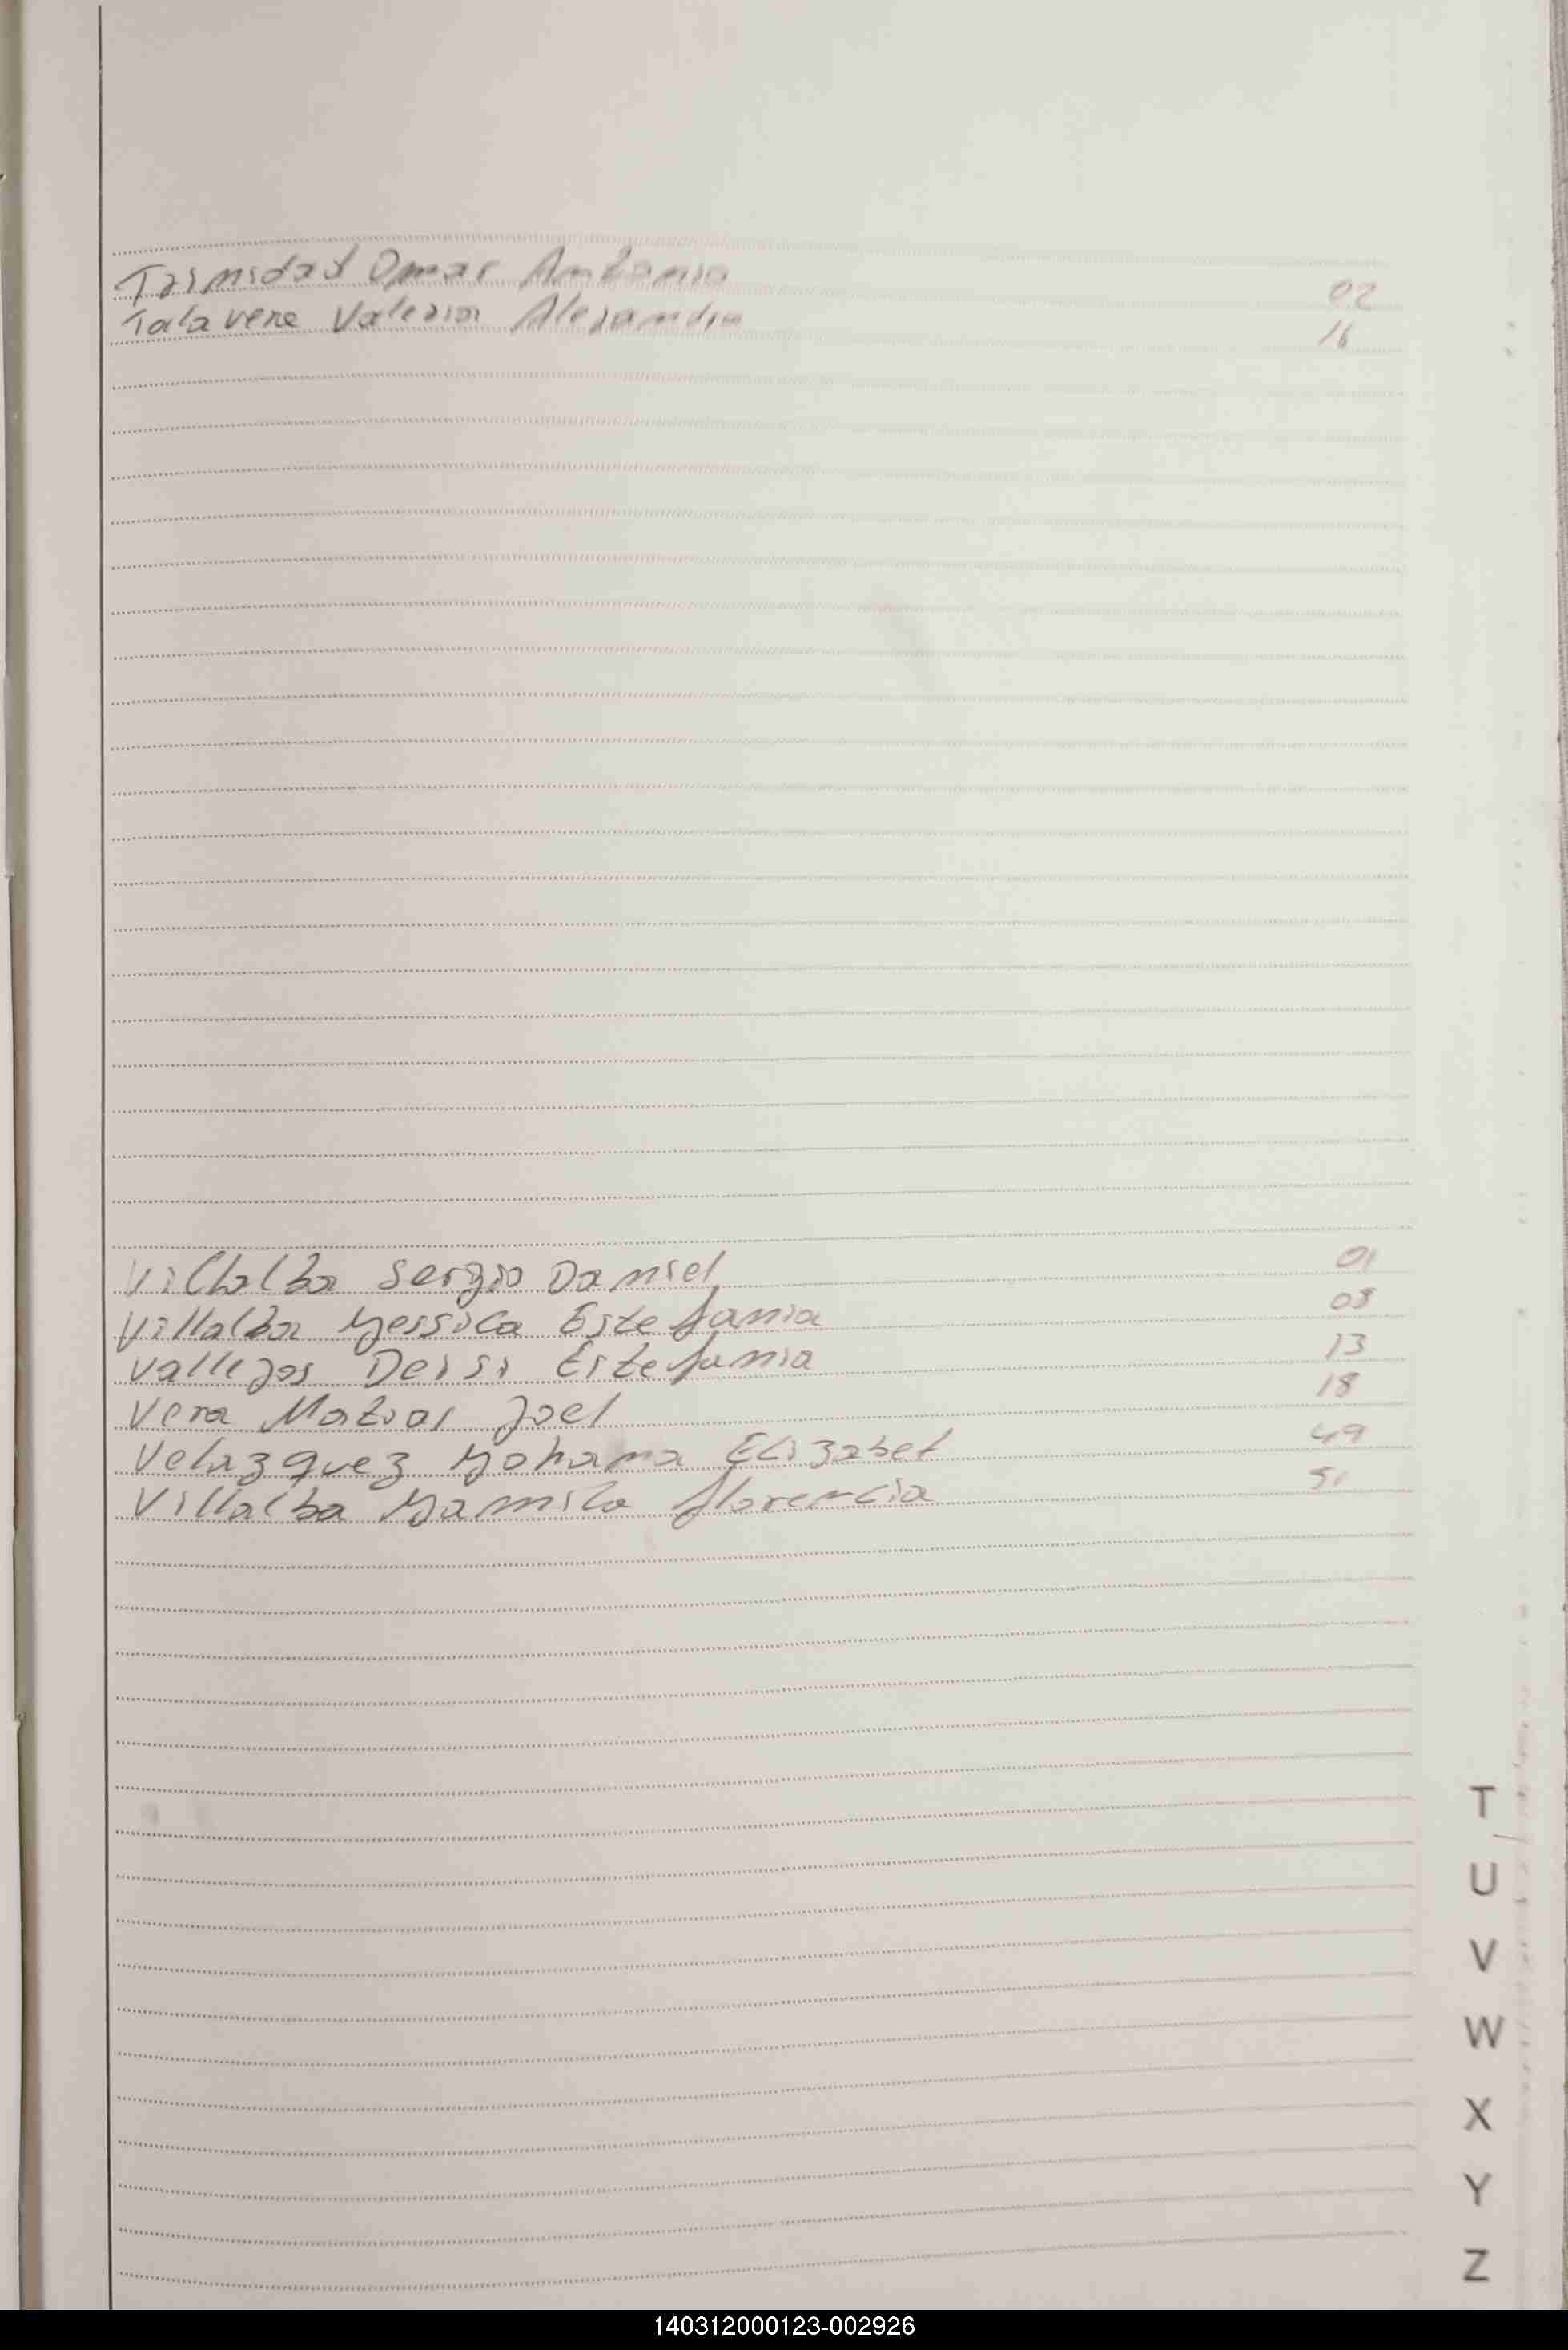 Trinidad Omar Antonio 02
Talavera Valeria Alejandra 16
Villalba Sergio Daniel 01
Villalba Yessica Estefania 03
Vallejos Deisi Estefania 13
Vera Matias Joel 18
Velazquez Yohana Elizabet 49
Villalba Yamila florencia 51
T
U
V
W
X
Y
Z
140312000123-002926